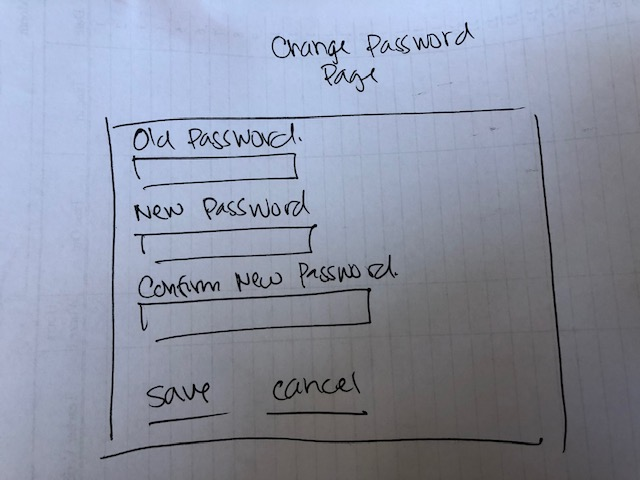 Change Password
Page
Old Password.
New Password
Confirm New Password.
save cancel